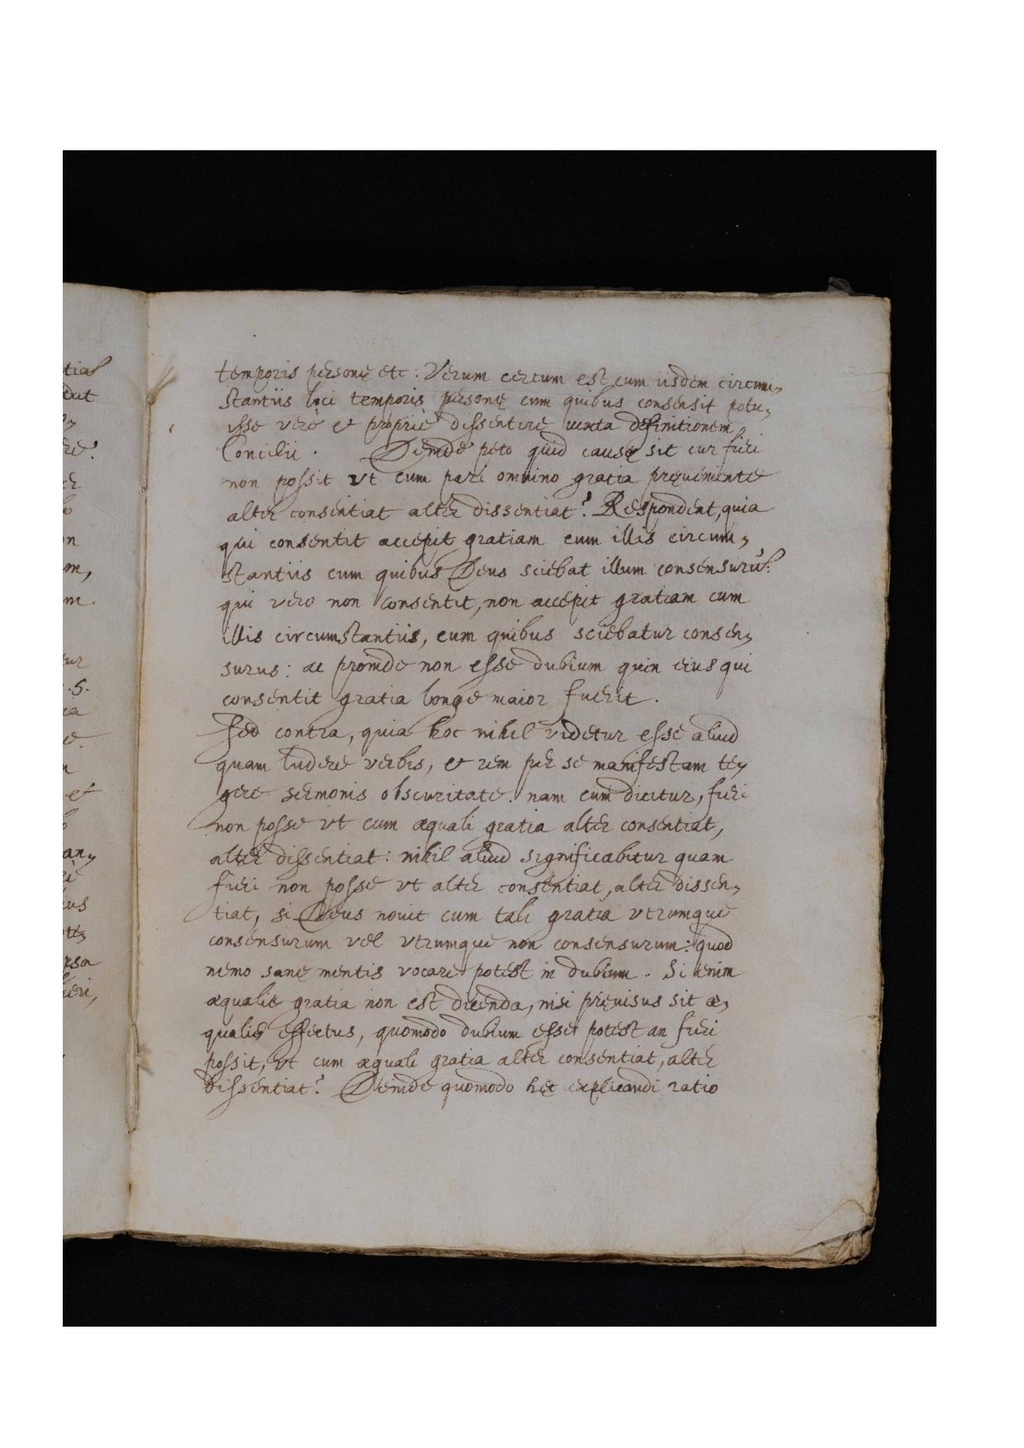 temporis personę etc: Verum certum est cum iisdem circum,
stantiis loci temporis personę cum quibus consensit potu,
isse verè et propriè dissentire iuxta definitionem
Concilii. Deinde peto quid causę sit cur fieri
non possit vt cum pari omnino gratia pręueniente
alter consentiat alter dissentiat? Respondent, quia
qui consentit accepit gratiam cum illis circum,
stantiis cum quibus Deus sciebat illum
qui vero non consentit, non accepit gratiam cum
illis circumstantiis, cum quibus sciebatur consen,
surus: ac proinde non esse dubium quin eius qui
consentit gratia longe maior fuerit.
Sed contra, quia hoc nihil videtur esse aliud
quam ludere verbis, et rem per se manifestam te,
gere sermonis obscuritate. nam cum dicitur, fieri
non posse vt cum æquali gratia alter consentiat,
alter dissentiat: nihil aliud significabitur quam
fieri non posse vt alter consentiat, alter dissen,
tiat, si Deus nouit cum tali gratia vtrumque
consensurum vel vtrumque non consensurum: quod
nemo sanę mentis vocare potest in dubium. Si enim
æqualis gratia non est dicenda, nisi pręuisus sit æ,
qualis effectus, quomodo dubium esse potest an fieri
possit, vt cum æquali gratia alter consentiat, alter
dissentiat? Deinde quomodo hęc explicandi ratio